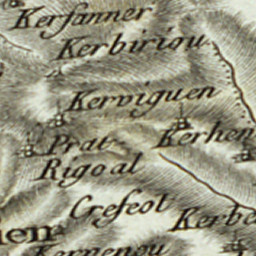 Kersanner
Kerbiriou
Kerviguen
Kerhen
Prat
Rigoal
Crefeol
Kerbe
Kernenou